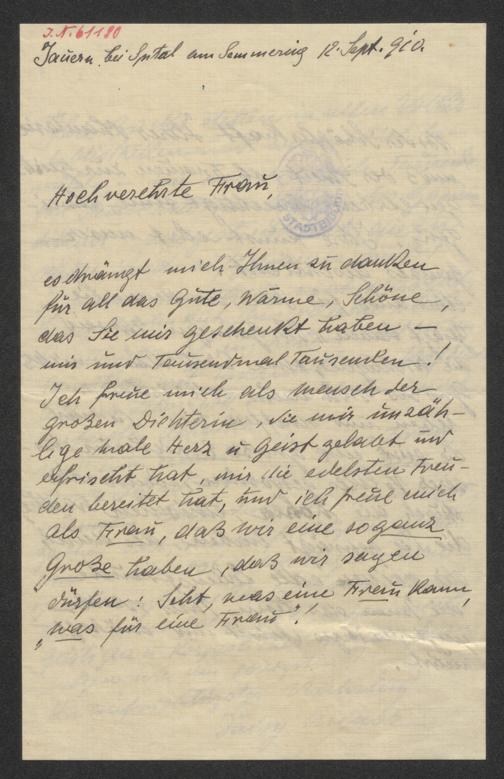 J.N. 61180
Jauern bei Spital am Semmering 12. Sept. 910.
STADTBI
Hochverehrte Frau,
es drängt mich Ihnen zu danken
für all das Gute, Warme, Schöne,
das Sie mir geschenkt haben –
mir und Tausendmal Tausenden!
Ich freue mich als Mensch der
großen Dichterin, die mir unzäh-
lige male Herz u Geist gelabt und
erfrischt hat, mir die edelsten Freu-
den bereitet hat, und ich freue mich
als Frau, daß wir eine so ganz
Große haben, daß wir sagen
dürfen: Seht, was eine Frau kann,
„was für eine Frau"!